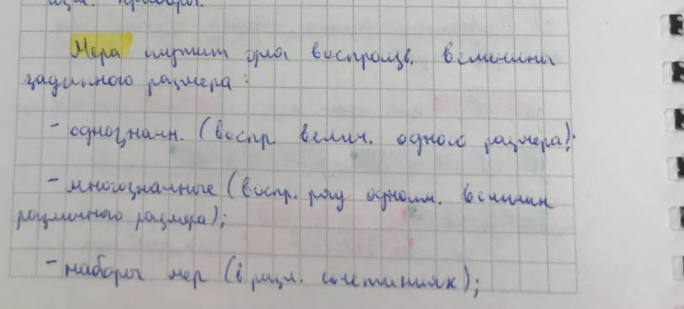 изм. приборы.
Мера служит для воспроизв. величины
заданного размера:
- однозначн. (воспр. велич. одного размера);
- многозначные (воспр. ряд одноим. величин
различного размера);
- наборы мер (в разл. сочетаниях);